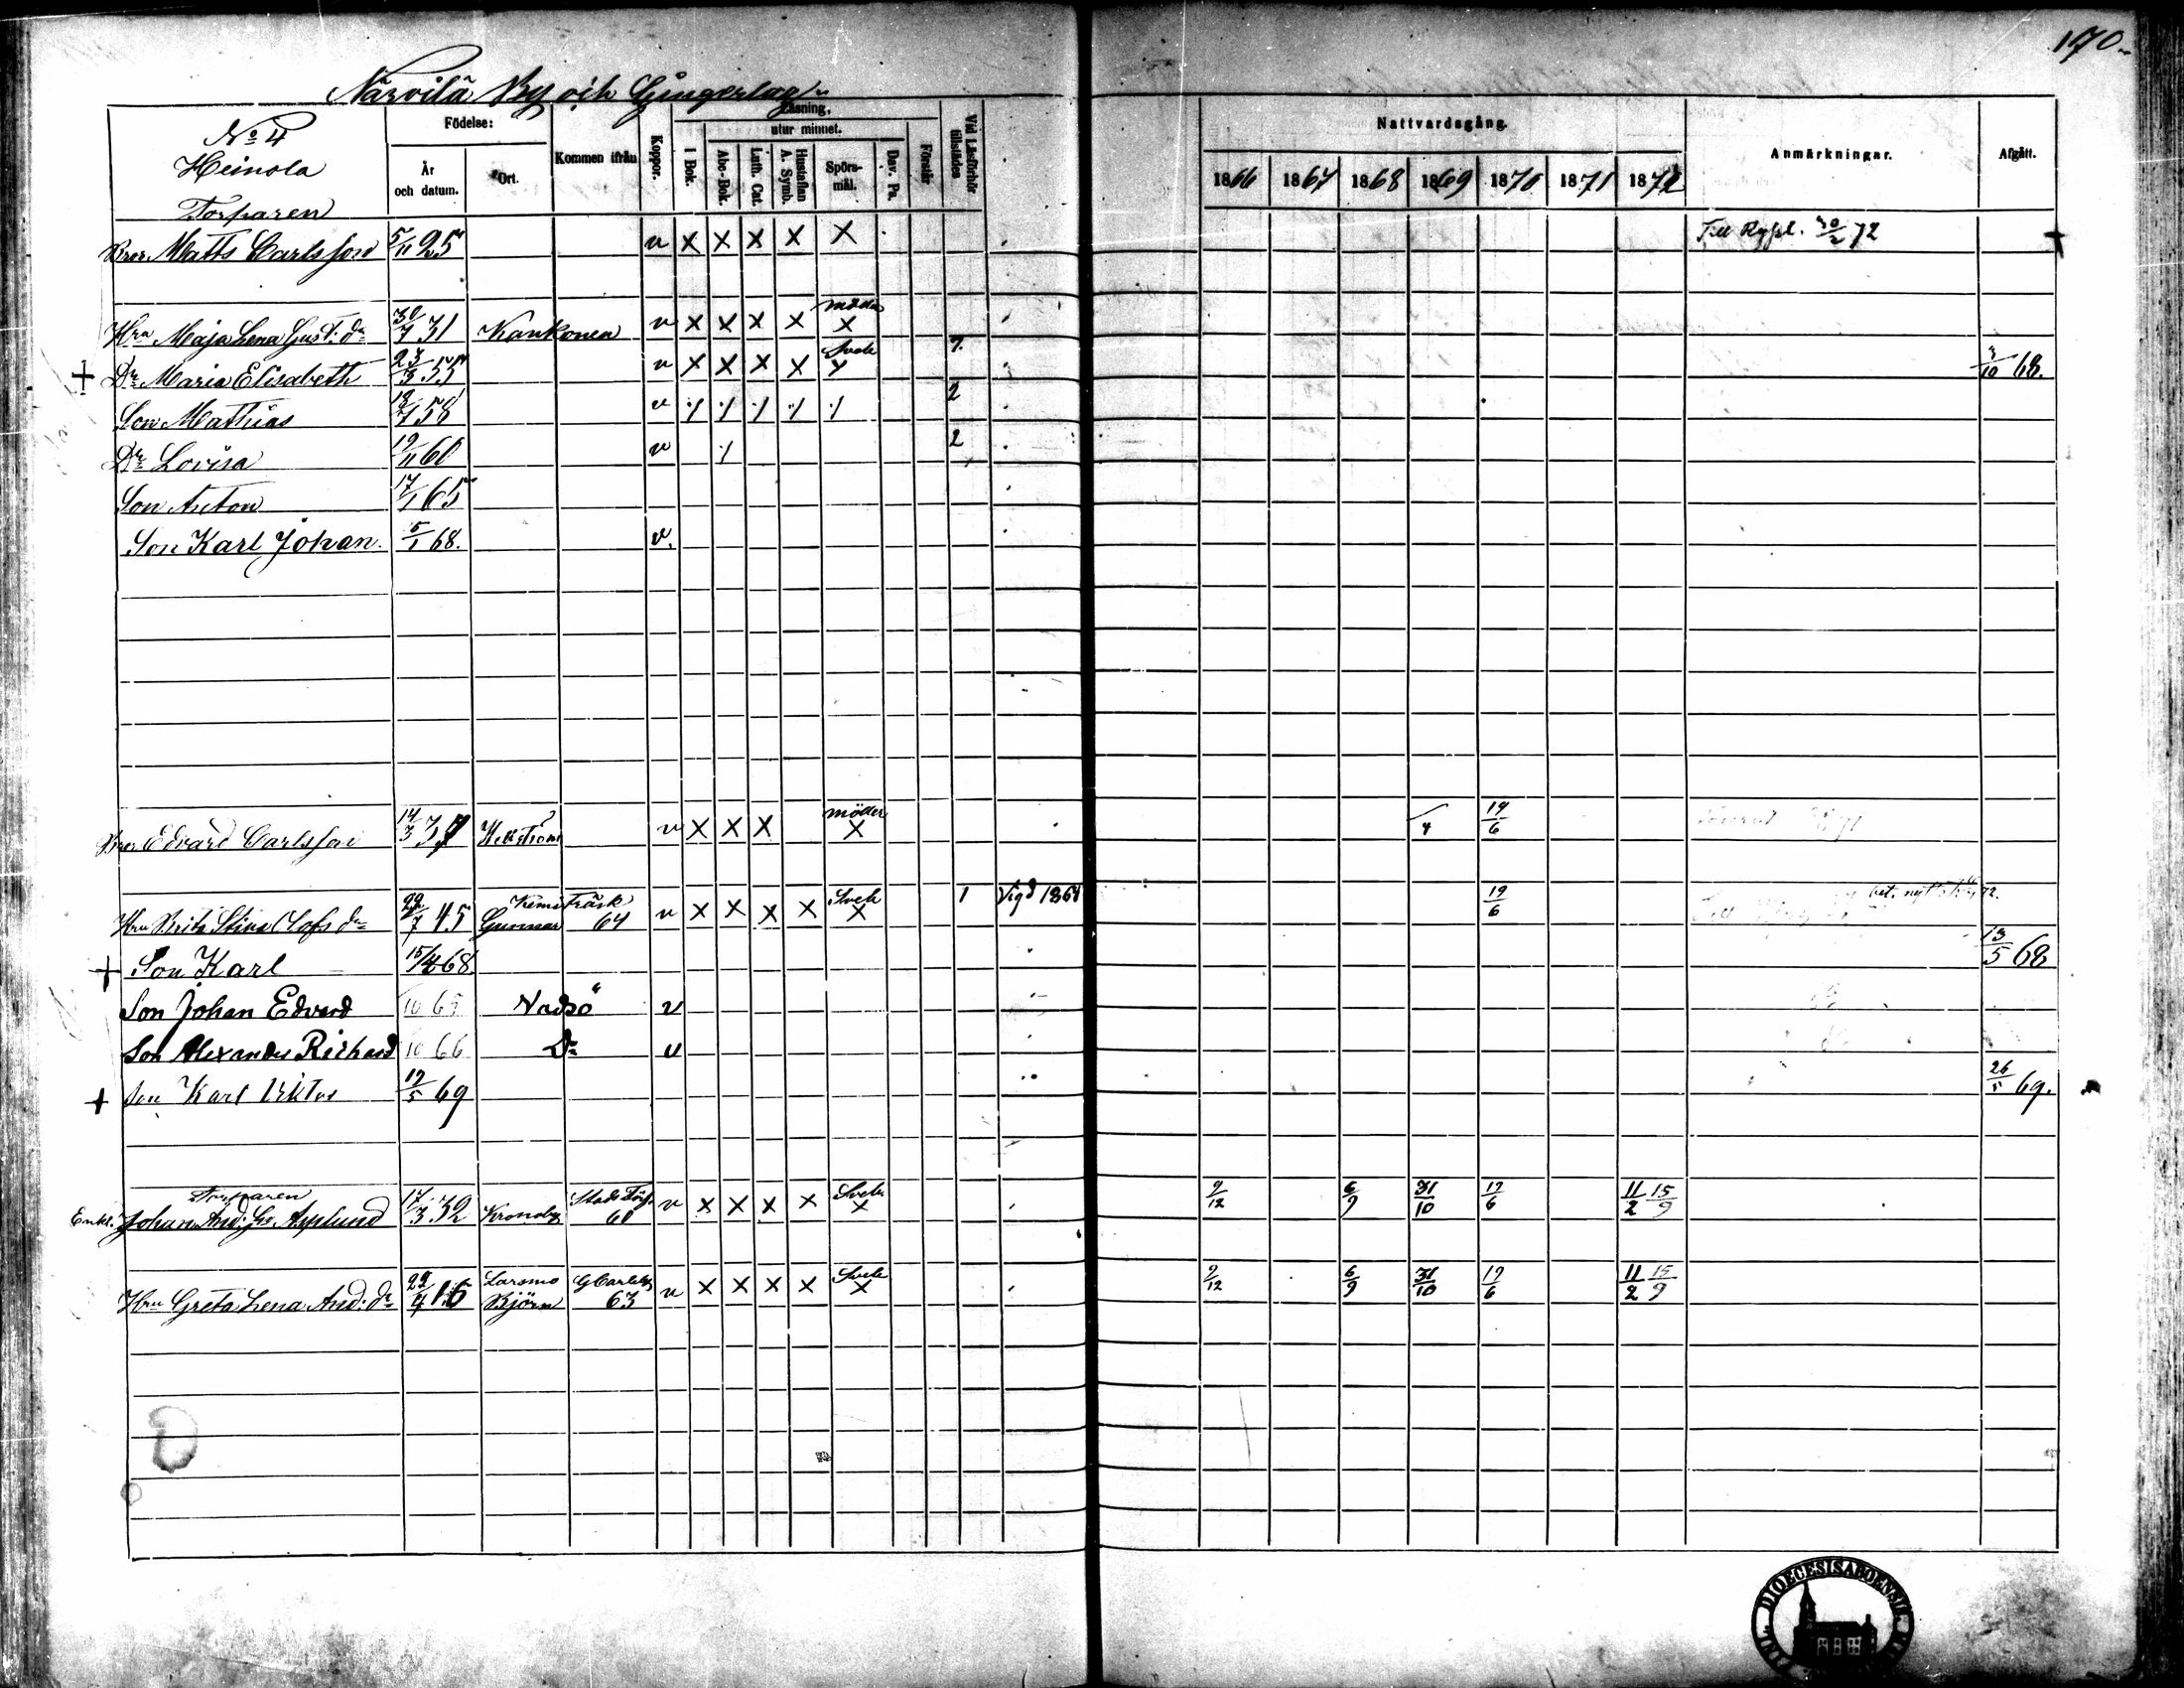 170.
Närvilä By och Gingerlag
No 4
Heinola
Torparen
Födelse:
År och datum.
Ort.
Kommen ifrån
Koppor.
Läsning,
I Bok.
utur minnet.
Abc-Bok.
Luth. Cat.
Hustaflan A. Symb.
Spörsmål.
Dav. Ps.
Förstår
Vid Läsförhör tillstädes
Nattvardsgång.
1866 1867 1868 1869 1870 1871 1872
Anmärkningar.
Afgått.
Bror Matts Carlsson 5/11 25 v X X X X X
Hru Maja Lena Gust. dr 30/7 31 Kankonen v X X X X X
Dr Maria Elisabeth 23/3 55 v X X X X Svek 7 3/10 68.
Son Mathias 18/7 58 v 2
Dr Lovisa 19/11 60 v 2
Son Anton 17/1 65
Son Karl Johan. 5/1 68. v.
Bror Edvard Carlsson 14/3 37 v X X X möder X 19/6
Hru Brita Stina Olofs dr 22/7 45 Kemi Träsk Gunnar 64 v X X X X Svek X 1 Vigd 1864 19/6
Son Karl 15/4 68 13/5 68
Son Johan Edvard 10 65 Vadsö v
Son Alexander Richard 10 66 Do v
Son Karl Viktor 19/5 69 26/5 69.
Torparen
Enkl. Johan And. Gr Asplund 17/3 32 Kronoby 60 v X X X X Svek X 9/12 6/9 31/10 19/6 11/2 15/9
Hru Greta Lena And. dr 22/9 16 Larsmo Björn G Carleby 63 v X X X X Svek X 9/12 6/9 31/10 19/6 11/2 15/9
DIOECESIS ABOENSIS